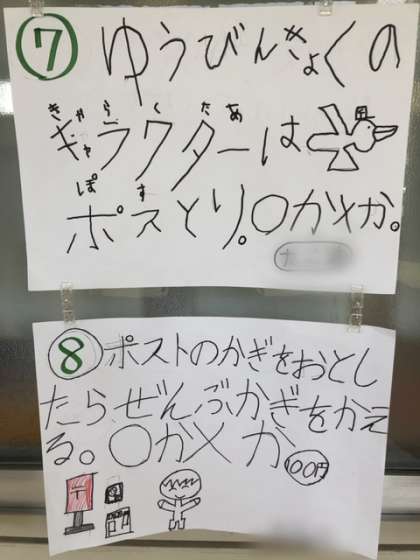 ⑦ ゆうびんきょくの
きゃらくたあ
キャラクターは
ぽす
ポスとり。〇か×か。
⑧ ポストのかぎをおとし
たら、ぜんぶかぎをかえ
る。〇か×か
100円
〒